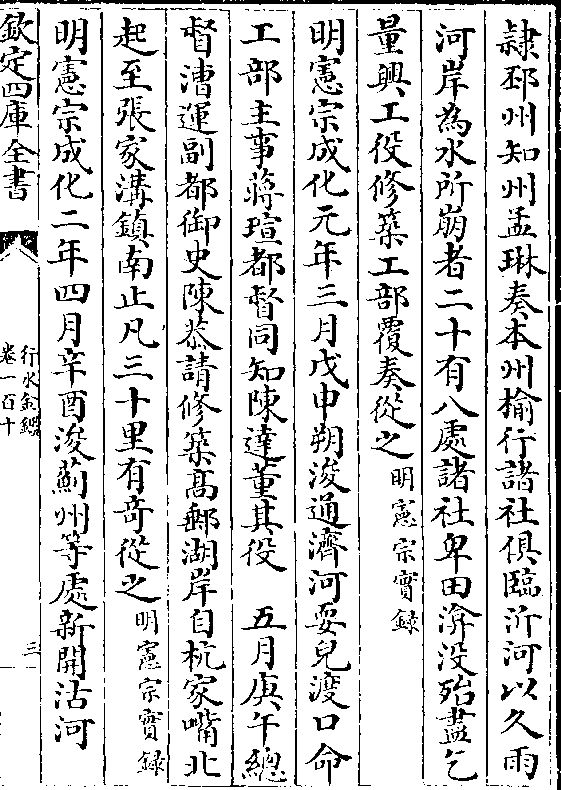 隷邳州知州孟琳奏本州榆行諸社俱臨沂河以久雨
河岸為水所崩者二十有八處諸社卑田渰没殆盡乞
量興工役修築工部覆奏從之明憲宗實録
明憲宗成化元年三月戊申朔浚通濟河耍兒渡口命
工部主事蔣瑄都督同知陳逵董其役　五月庚午總
督漕運副都御史陳㳟請修築髙郵湖岸自杭家嘴北
起至張家溝鎮南止凡三十里有奇從之明憲宗實録
明憲宗成化二年四月辛酉浚薊州等處新開沽河
欽定四庫全書
行水金鑑
卷一百十
三